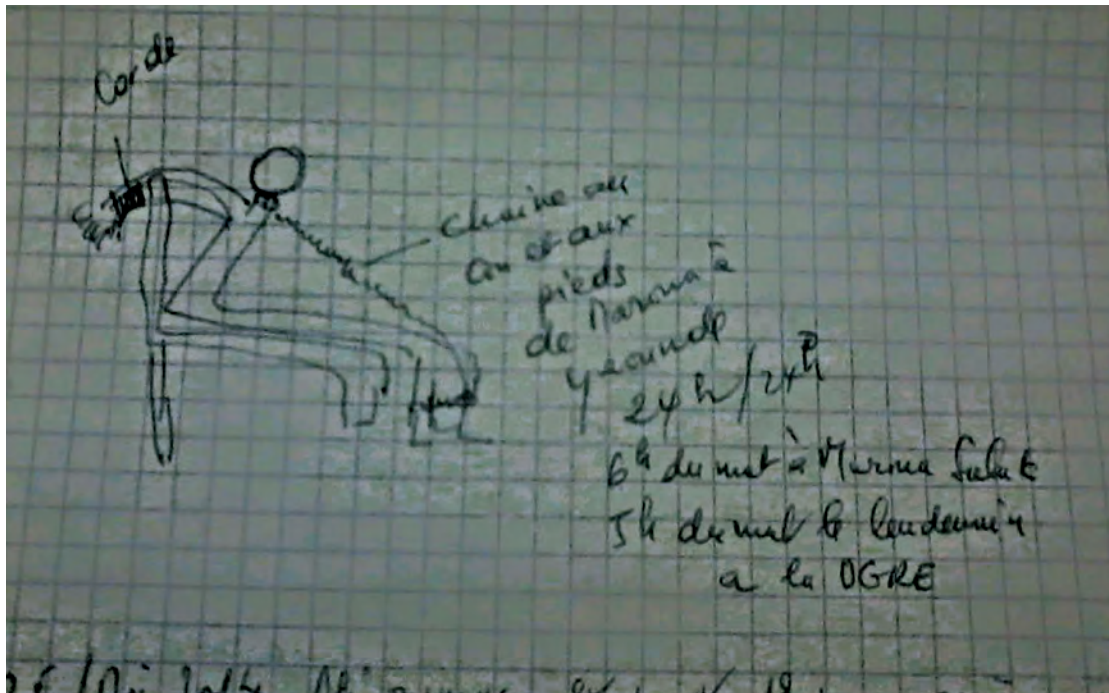 Corde
chaine au
cou et aux
pieds
de Maroua à
Yaounde
24h/24h
6h du mat à Maroua Salak
5h du mat le lendemain
a la DGRE